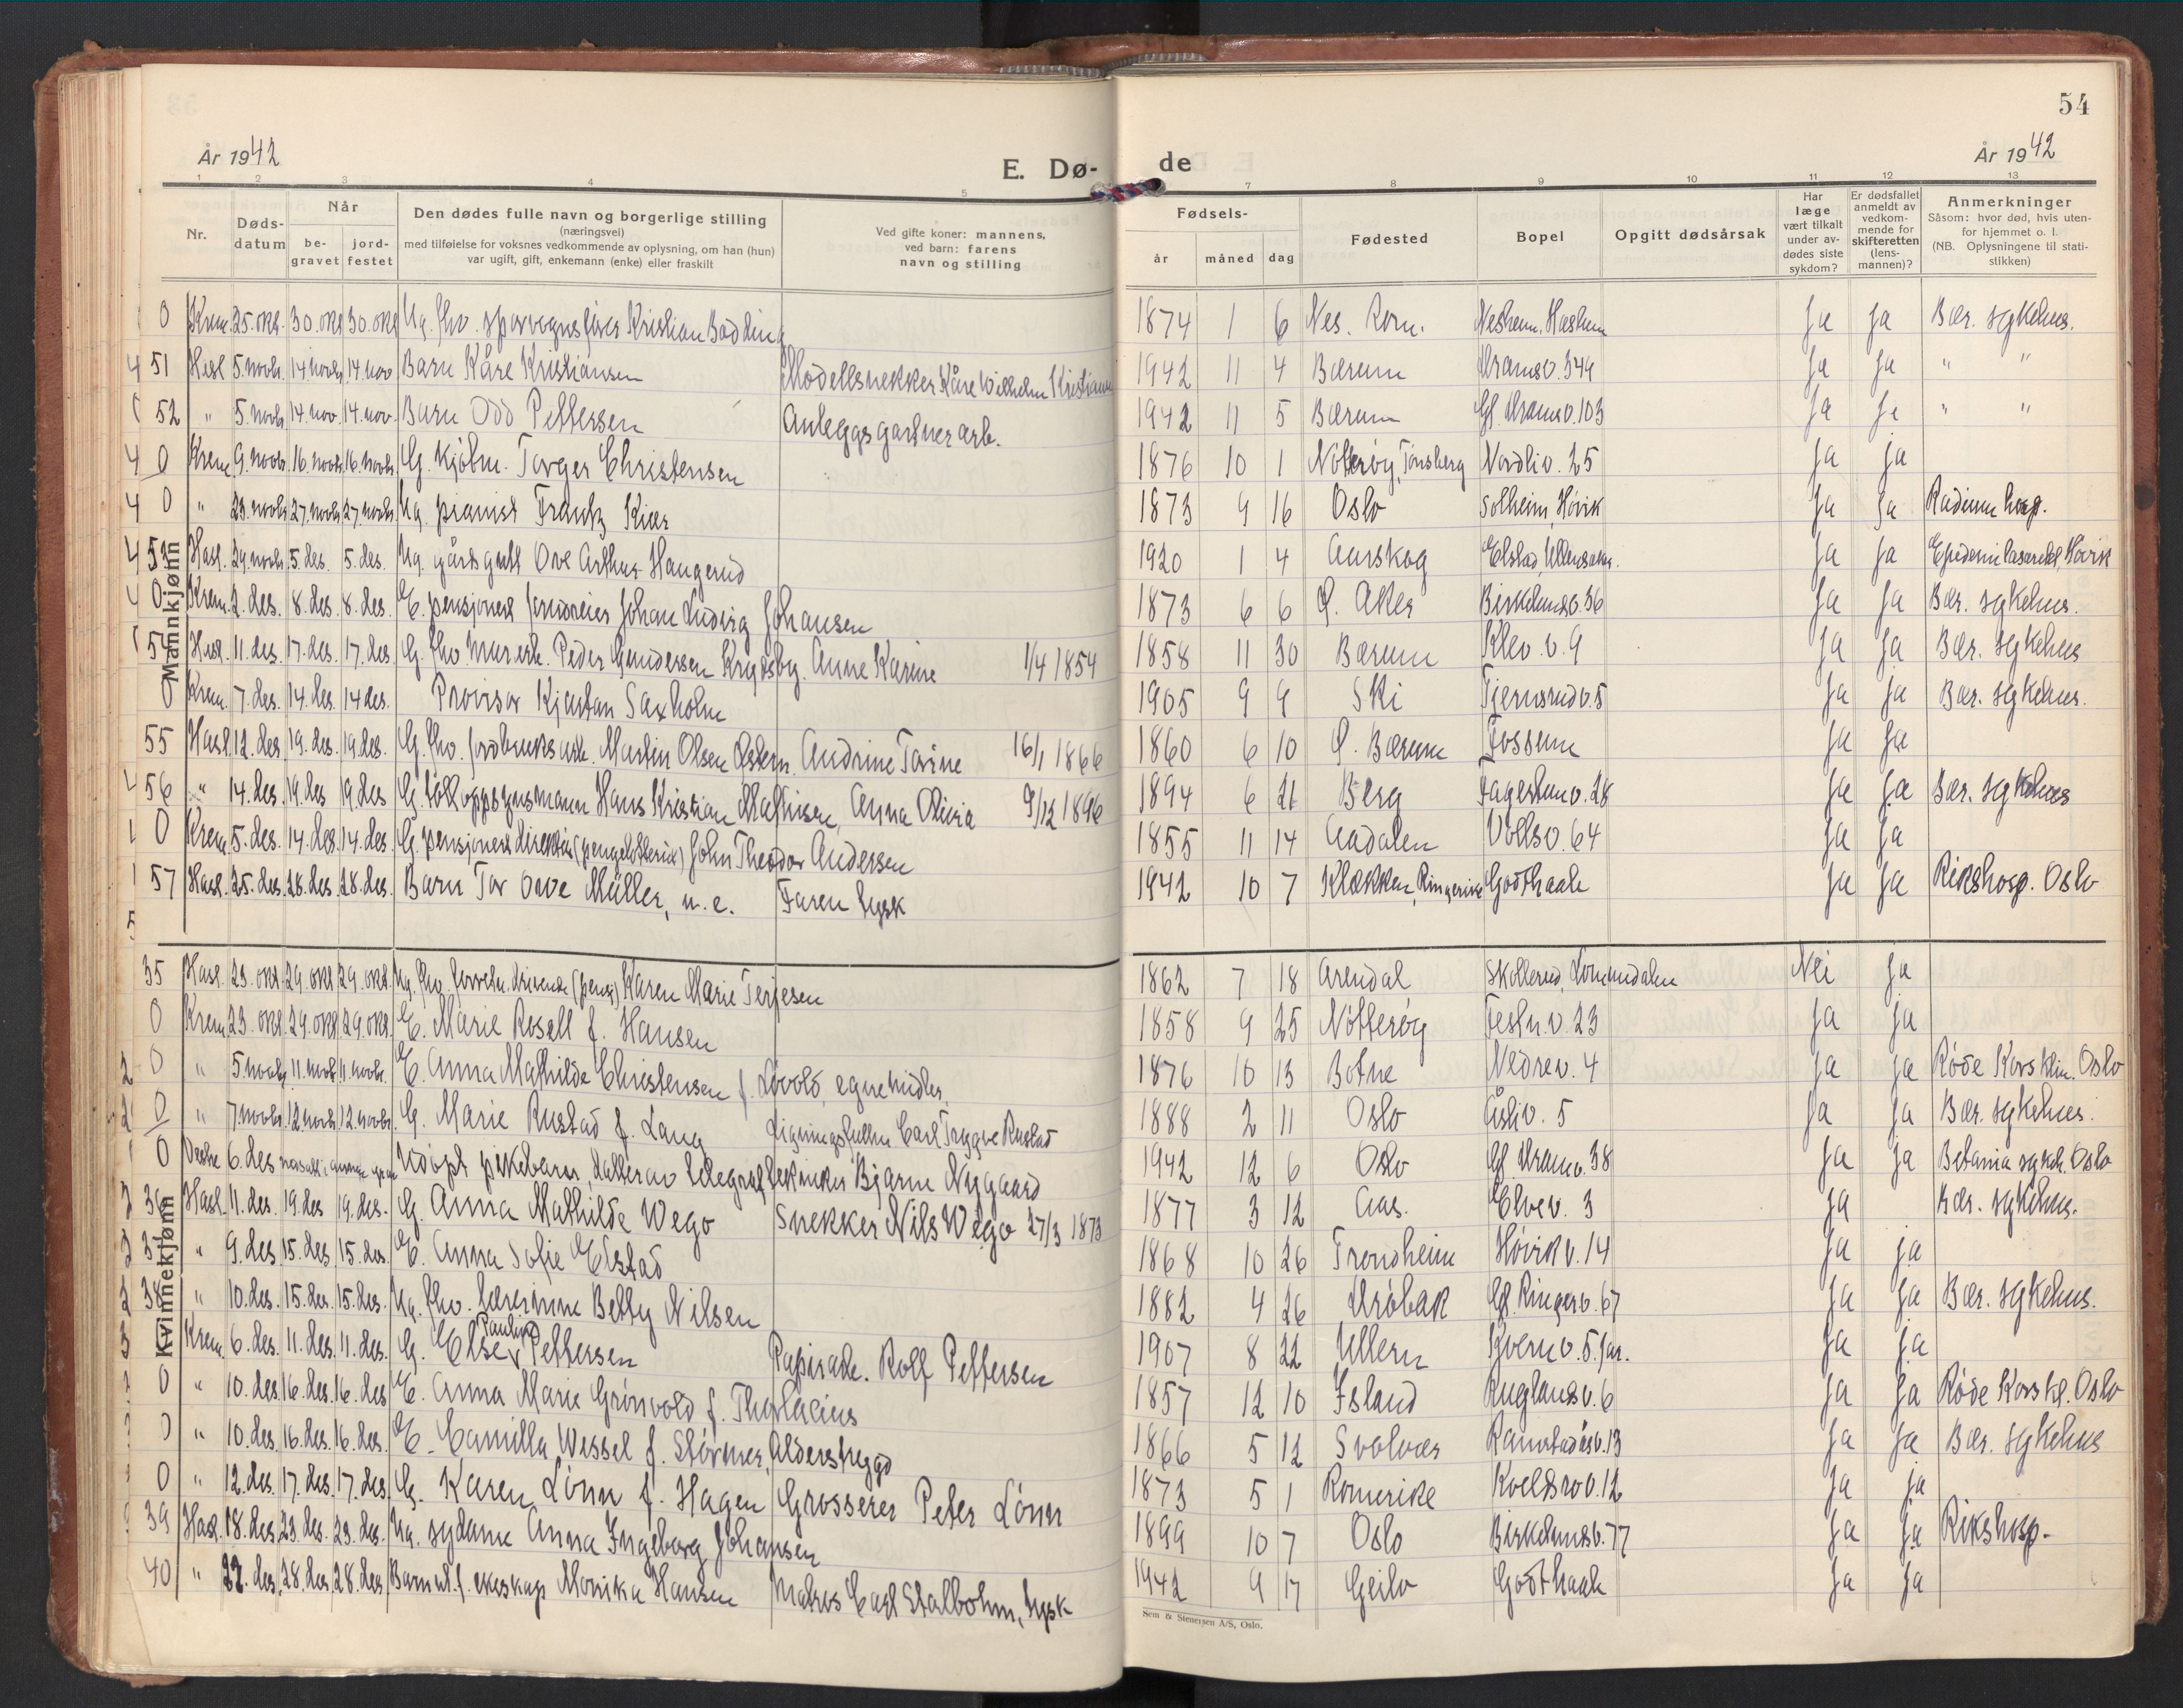 54
År 1942
E. Dø-
de
År 1942
1 2 3 4 5 7 8 9 10 11 12 13
Nr.
Døds-
datum
Når
be-
gravet
jord-
festet
Den dødes fulle navn og borgerlige stilling
(næringsvei)
med tilføielse for voksnes vedkommende av oplysning, om han (hun)
var ugift, gift, enkemann (enke) eller fraskilt
Ved gifte koner: mannens,
ved barn: farens
navn og stilling
Fødsels-
år måned dag
Fødested
Bopel
Opgitt dødsårsak
Har
læge
vært tilkalt
under av-
dødes siste
sykdom?
Er dødsfallet
anmeldt av
vedkom-
mende for
skifteretten
(lens-
mannen)?
Anmerkninger
Såsom: hvor død, hvis uten-
for hjemmet o. l.
(NB. Oplysningene til stati-
stikken)
Mannkjønn
0 Krem. 25. okt. 30. okt 30. okt Ug. fhv. sporvognsfører Kristian Bødding 1874 1 6 Nes. Rom. Nesheim, Haslum ja ja Bær. sykehus.
51 Hasl 5. novbr. 14. novbr. 14. nov Barn Kåre Kristiansen Modellsnekker Kåre Wilhelm Kristiansen 1942 11 4 Bærum Dramsv. 349 ja ja " "
52 " 5. novbr. 14. nov. 14. nov. Barn Odd Pettersen Anleggsgartnerarb. 1942 11 5 Bærum Gl. Dramsv. 103 ja ja " "
0 Krem. 9. novbr. 16. novbr. 16. novbr. G. Kjøbm. Torger Christensen 1876 10 1 Nøtterøy, Tønsberg Nordliv. 25 ja ja
0 " 23. novbr. 27. novbr. 27. novbr. Ug. pianist Frantz Kiær 1873 9 16 Oslo Solheim, Høvik ja ja Radium hosp.
53 Hasl. 29. novbr. 5. des. 5. des. Ug. gårdsgutt Ove Arthur Haugerud 1920 1 4 Aurskog Elstad, Ullensaker. ja ja Epidemilasarettet, Høvik
0 Krem. 2. des. 8. des. 8. des. E. pensjonert Johan Ludvig Johansen 1873 6 6 Ø. Aker Birkelundsv. 36 ja ja Bær. sykehus.
54 Hasl. 11. des. 17. des. 17. des. G. fhv. murerh. Peder Gundersen Anne Karine 1/4 1854 1858 11 30 Bærum Klev. v. 9 ja ja Bær. sykehus
0 Krem. 7. des. 14. des. 14 des. Provisor Kjartan Saxholm 1905 9 9 Ski Tjernsrudv. 5 ja ja Bær. sykehus.
55 Hasl. 12. des. 19. des. 19. des. G. fhv. jordbruksarb. Martin Olsen Østern. Andrine Torine 16/1 1866 1860 6 10 Ø. Bærum Fossum ja ja
56 " 14. des. 19. des 19. des G. tolloppsynsmann Hans Kristian Mathisen, Anna Olivia 9/12 1896 1894 6 21 Berg Fagerlunv. 28 ja ja Bær. sykehus
0 Krem. 5. des. 14. des. 14. des. G. pensjonert direktør (pengelotteriet) John Theodor Andersen 1855 11 14 Aadalen Vollsv. 64 ja ja
57 Hasl. 25. des. 28. des. 28. des. Barn Tor Ove Müller, u. e. Faren tysk 1942 10 7 Klækken, Ringerike Godthaab ja ja Rikshosp. Oslo
Kvinnekjønn
35 Hasl. 23. okt. 29. okt 29. okt. Ug. fhv. (pens) Karen Marie Terjesen 1862 7 18 Arendal Skollerud, Lommedalen Nei ja
0 Krem. 23. okt. 29. okt. 29. okt. E. Marie Rosell f. Hansen 1858 9 25 Nøtterøy Festn. v. 23 ja ja
0 " 5. novbr. 11. novb. 11. novbr. E. Anna Mathilde Christensen f. Løvold, egne midler. 1876 10 13 Botne Nedrev. 4 ja ja Røde Kors klin. Oslo
0 " 7. novbr. 12 novbr. 12. novbr. G. Marie Rustad f. Lang Ligningsfullm Carl Trygve Rustad 1888 2 11 Oslo Åsliv. 5 ja ja Bær. sykehus.
0 6. des nedsatt i annen grav Udøpt pikebarn, datter av telegraftekniker Bjarne Nygaard 1942 12 6 Oslo Gl. Dramv. 38 ja ja Betania sykeh. Oslo
36 Hasl. 11. des. 19. des 19. des. G. Anna Mathilde Wego Snekker Nils Wego 27/3 1873 1877 3 12 Aas. Elvev. 3 ja Bær. sykehus.
37 " 9. des. 15. des. 15. des. E. Anna Sofie Elstad 1868 10 26 Trondheim Høvikv. 14 ja ja
38 " 10. des. 15. des. 15. des. Ug. fhv. lærerinne Betty Nilsen 1882 4 26 Drøbak Gl. Ringer. v. 67 ja ja Bær. sykehus.
Krem. 6. des. 11. des. 11. des. G. Else Pauline Pettersen Papirarb. Rolf Pettersen 1907 8 22 Ullern Kvernv. 5. Jar. ja ja
0 " 10. des. 16. des. 16. des E. Anna Marie Grønvold f. Thorlacius 1857 12 10 Island Ruglandsv. 6 ja ja Røde Kors kl. Oslo
0 " 10. des. 16. des. 16. des. E. Camilla Wessel f. Størmer, Alderstrygd 1866 5 12 Svolvær Ramstadåsv. 13 ja ja Bær. sykehus
0 " 12. des. 17. des. 17. des. G. Karen Lønn f. Hagen Grosserer Peter Lønn 1873 5 1 Romerike Kveldsrov. 12 ja ja
39 Hasl. 18. des. 23. des. 23. des. Ug. sydame Anna Ingeborg Johansen 1899 10 7 Oslo Birkelundsv. 77 ja ja Rikshosp.
40 " 22. des. 28. des. 28. des. Barn ut. f. ekteskap Monika Hansen Matros Carl Stalbohm, tysk 1942 9 17 Geilo Godthaab ja ja
Sem & Stenersen A/S, Oslo.